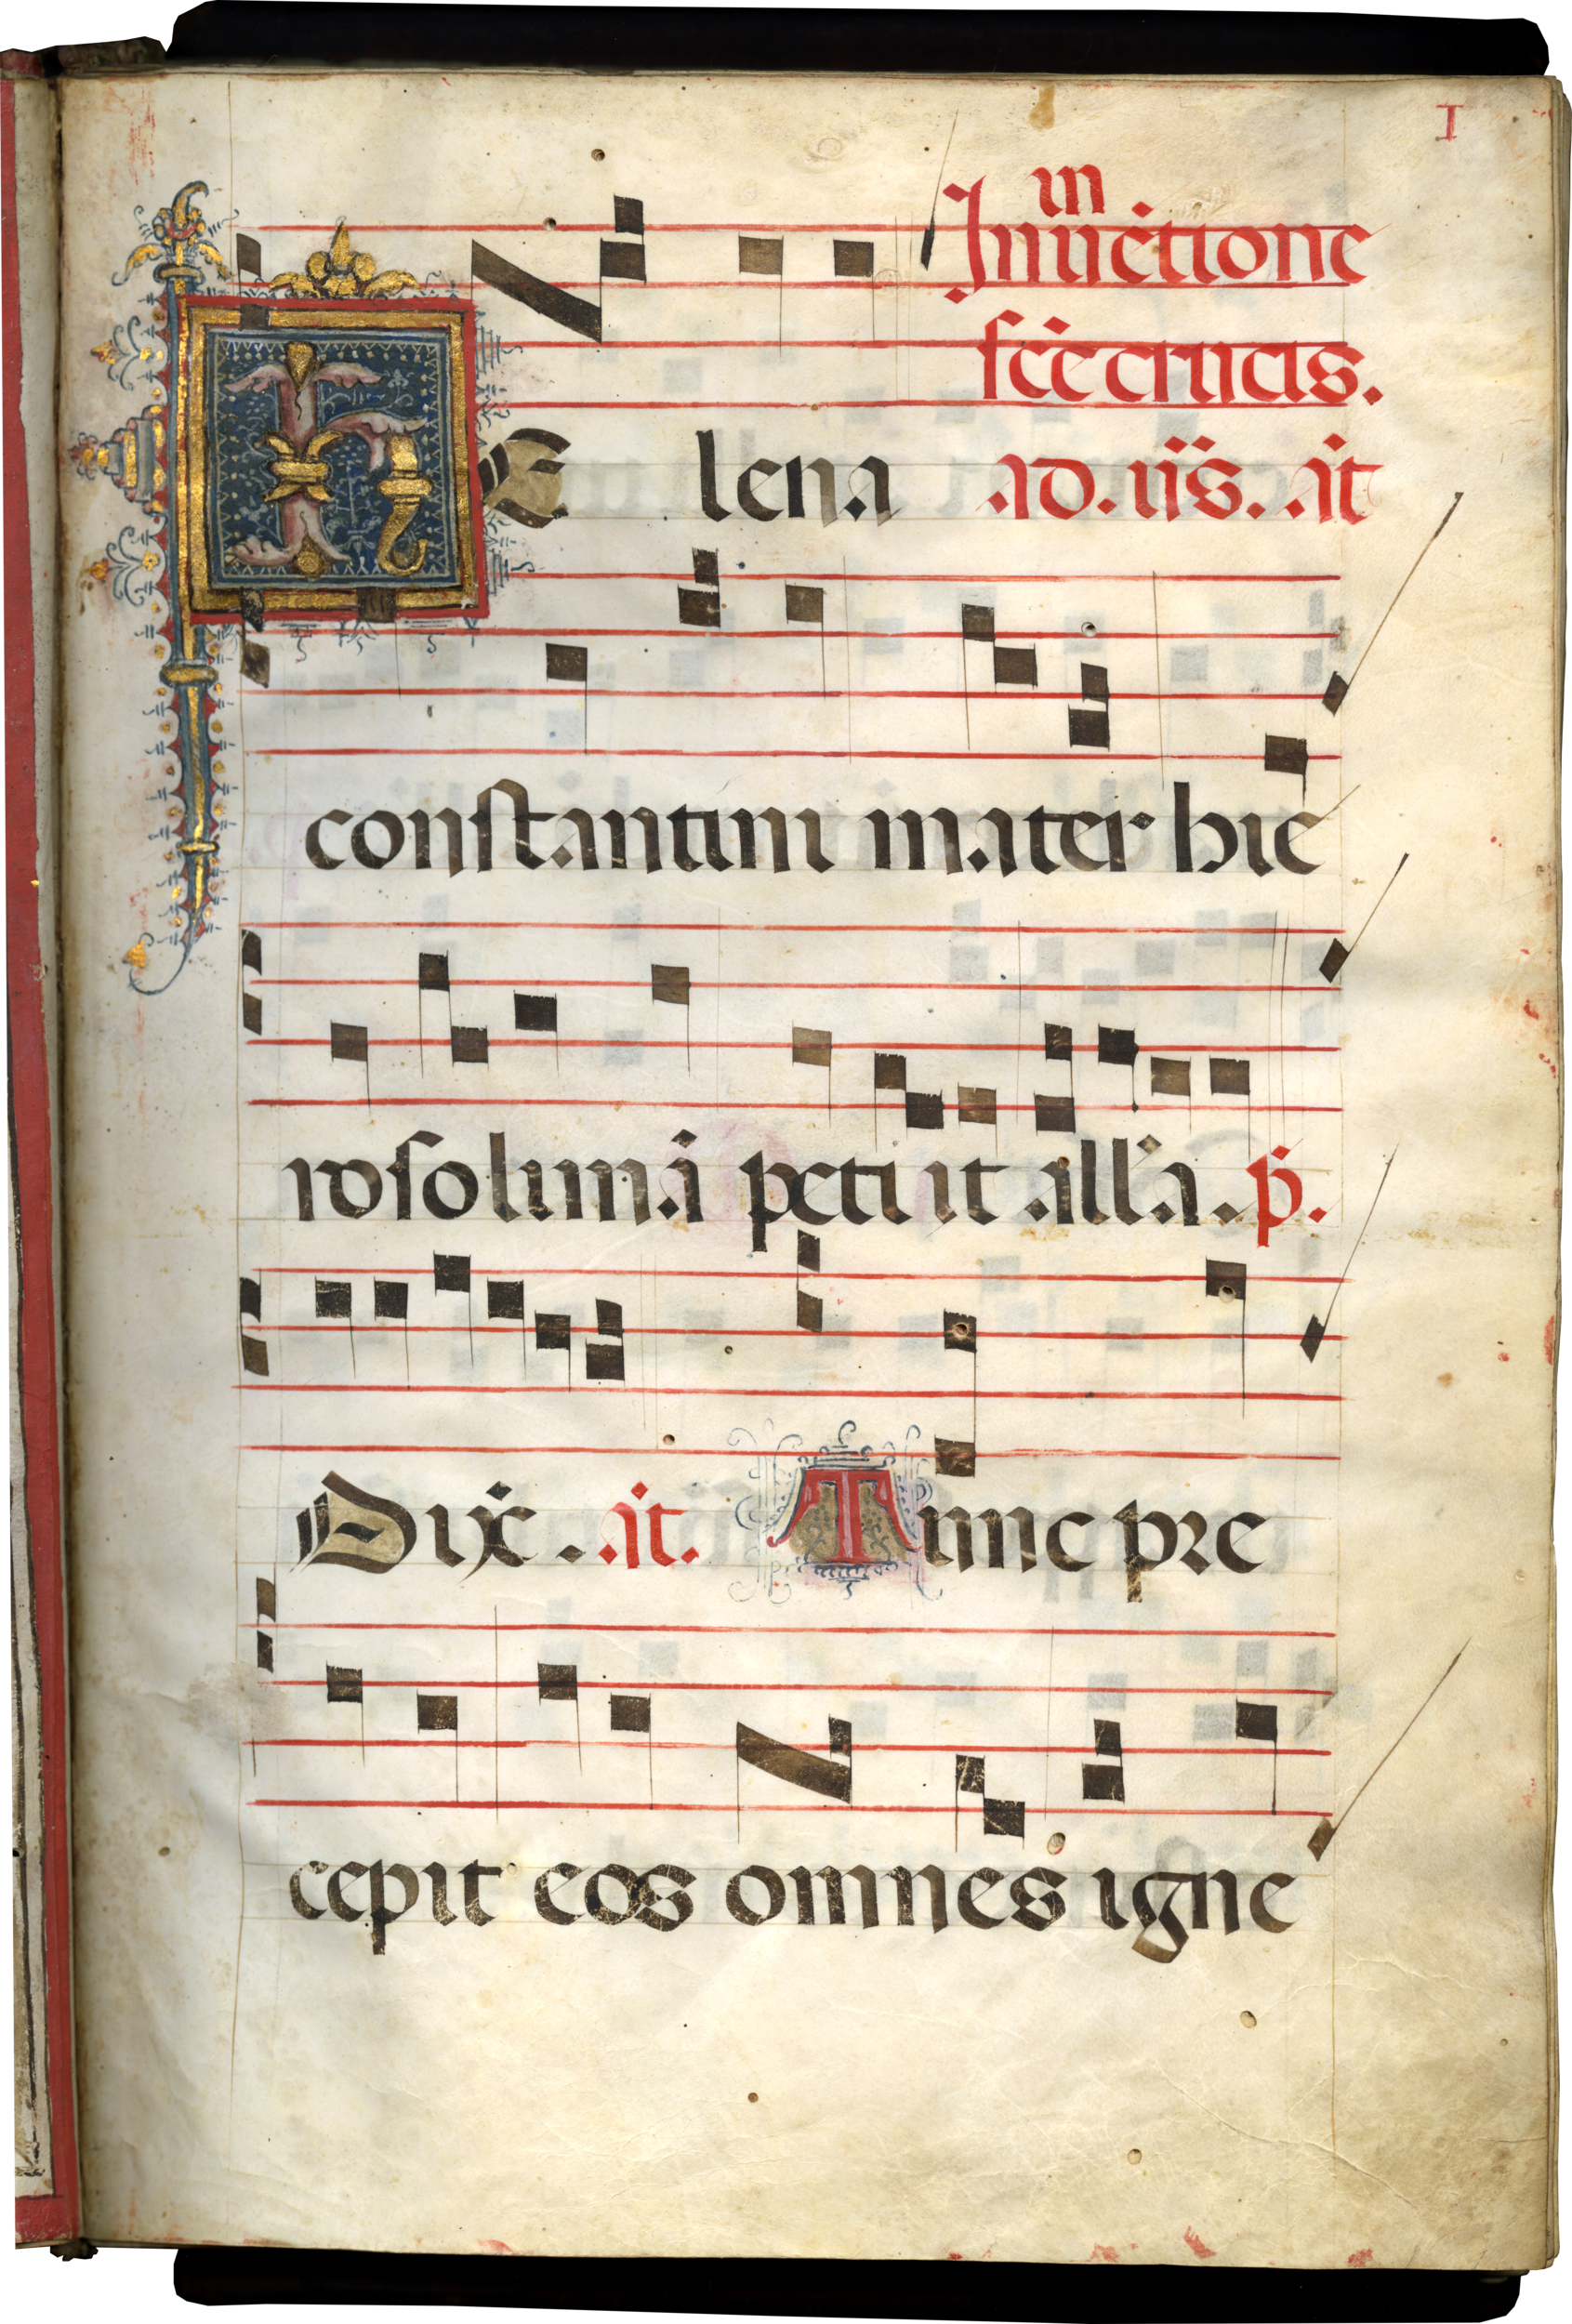 I
in
Inuētione
scē crucis.
HElena ad. ūs. añ
constantini mater hie
rosolimā petiit all'a. p̄.
Dix̄. añ. Tunc pre
cepit eos omnes igne